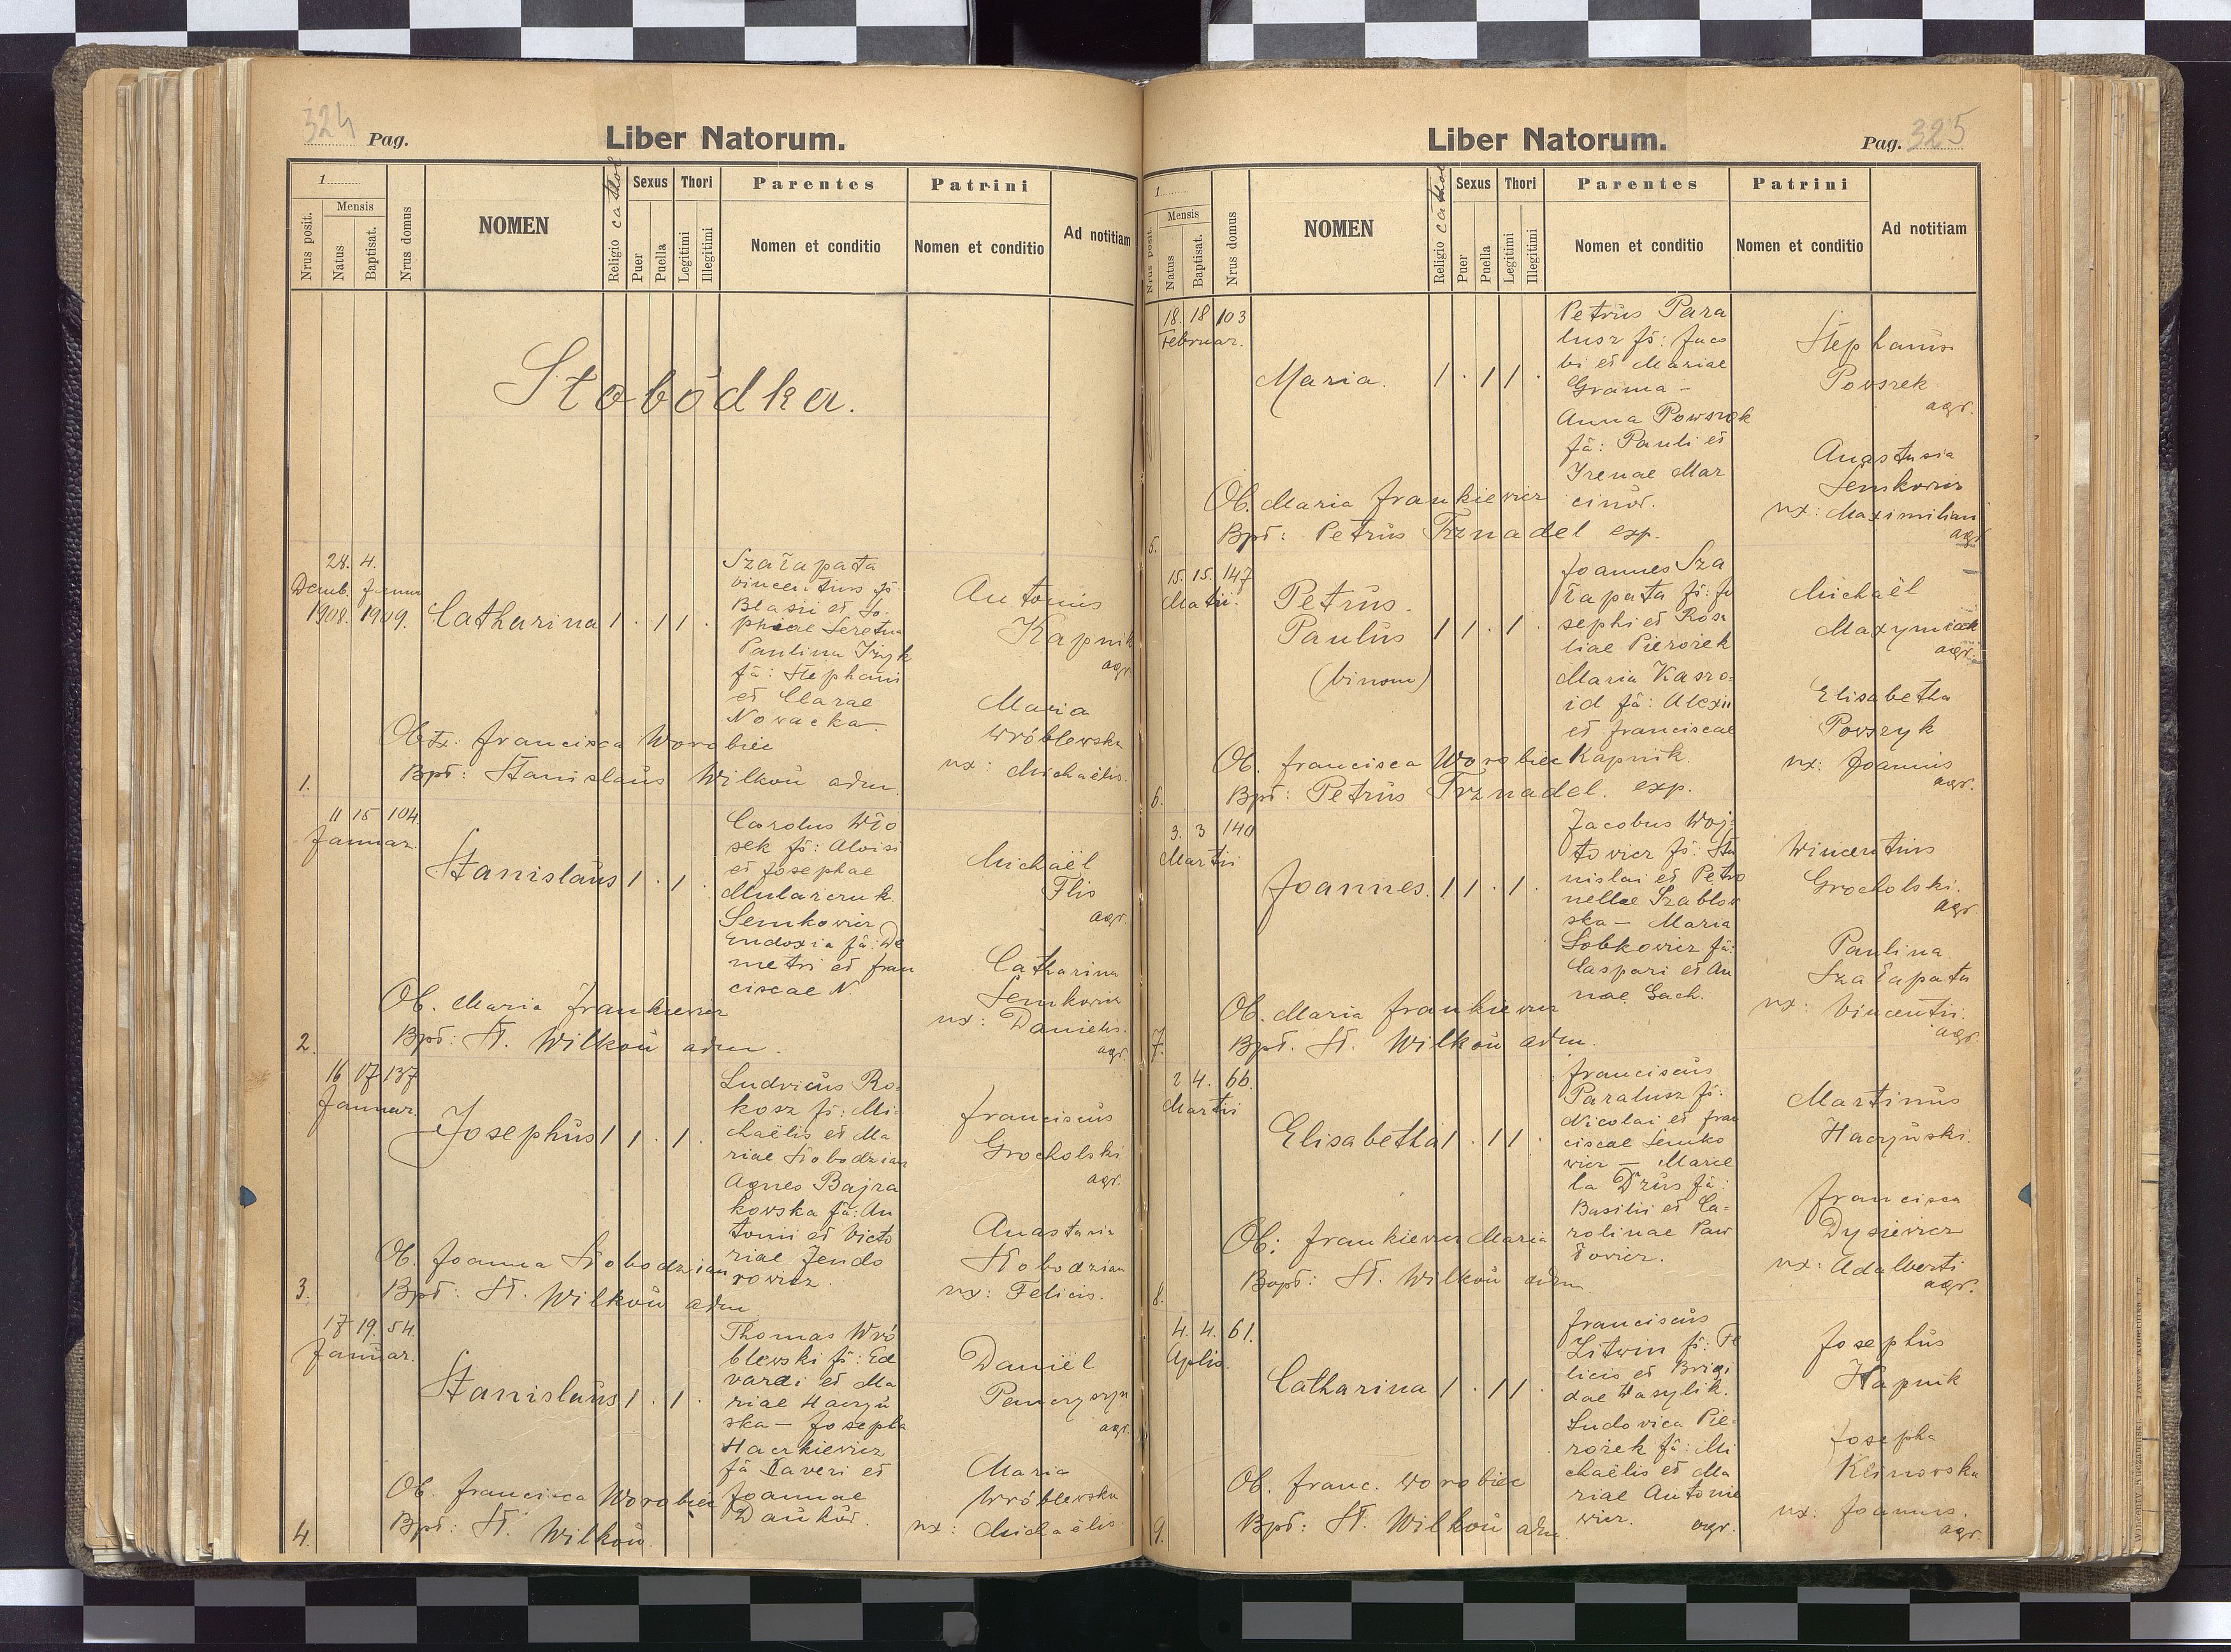 324 Pag.
Liber Natorum.
1
Mensis
Nrus posit.
Natus
Baptisat.
Nrus domus
NOMEN
Religio cathol
Sexus
Puer
Puella
Thori
Legitimi
Illegitimi
Parentes
Nomen et conditio
Patrini
Nomen et conditio
Ad notitiam
Stobódka.
28. 4.
Decmb. Januar
1908. 1909.
Catharina 1 . 1 1 .
Szałapata
Vincentius fs:
Blasii et So-
phiae
Paulina
fa: Stephani
et Clarae
Nowacka
Antonius
Kapnik
agr.
Maria
Wróblewska
ux: Michaëlis.
Obstx: Francisca Worobiec
Bpt: Stanislaus Wilkoń adm.
1.
11 15 104.
Januar.
Stanislaus 1 1 . 1 .
Carolus Wło
sek fs: Aloisi
et Josephae
Mularczuk.
Semkowicz
Eudoxia fa: De
metri et Fran
ciscae N.
Michaël
Flis
agr.
Catharina
Semkowicz
ux: Danielis.
agr.
Ob. Maria Frankiewicz
Bpt: St. Wilkoń adm.
2.
16 17 137
Januar.
Josephus 1 1 . 1 .
Ludvicus Ro-
kosz fs: Mi-
chaëlis et Ma
riae Słobodzian
Agnes Bajra
kowska fa: An
tonii et Victo
riae Jendo
rowicz.
Franciscus
Grocholski
agr.
Anastasia
Słobodzian
ux: Felicis.
Ob. Joanna Słobodzian
Bpt: St. Wilkoń adm
3.
17 19. 54.
Januar.
Stanislaus 1 1 . 1 .
Thomas Wró
blewski fs: Ed
vardi et Ma
riae Haczyń
ska — Josepha
Hackiewicz
fa Xaveri et
Joannae
Dańków.
Daniël
Panczyszyn
agr.
Maria
Wróblewska
ux: Michaëlis
Ob. Francisca Worobiec
Bpt: St. Wilkoń.
4.
Liber Natorum.
Pag. 325
1
Mensis
Nrus posit.
Natus
Baptisat.
Nrus domus
NOMEN
Religio cathol
Sexus
Puer
Puella
Thori
Legitimi
Illegitimi
Parentes
Nomen et conditio
Patrini
Nomen et conditio
Ad notitiam
18. 18 103
Februar.
Maria. 1 . 1 1 .
Petrus Para
lusz fs: Jaco
bi et Mariae
Grama —
Anna Powszek
fa: Pauli et
Irenae Mar
cinów.
Stephanus
Powszek
agr.
Anastasia
Semkowicz
ux: Maximiliani
agr.
Ob. Maria Frankiewicz
Bpt: Petrus Trznadel exp.
5.
15. 15. 147
Martii.
Petrus.
Paulus 1 1 . 1 .
(binom)
Joannes Sza
łapata fs: Jo
sephi et Rosa
liae Pierożek
Maria Kaszo-
id fa: Alexii
et Franciscae
Kapnik.
Michaël
Maxymiak
agr.
Elisabetha
Powszyk
ux: Joannis
agr.
Ob. Francisca Worobiec
Bpt: Petrus Trznadel. exp.
6.
3. 3 140
Martii
Joannes. 1 1 . 1 .
Jacobus Woj-
towicz fs: Sta
nislai et Petro
nellae Szablow
ska — Maria
Sobkowicz fa:
Caspari et An
nae Gach.
Wincentius
Grocholski.
agr.
Paulina
Szałapata
ux: Vincentii.
agr.
Ob. Maria Frankiewicz
Bpt. St. Wilkoń adm.
7.
2 4. 66.
Martii
Elisabetha 1 . 1 1 .
Franciscus
Paralusz fs:
Nicolai et Fran
ciscae Semko
wicz — Marce
la Dżus fa:
Basilii et Ca-
rolinae Paw
łowicz.
Martinus
Haczyński.
Francisca
Dysiewicz
ux: Adalberti
agr.
Ob: Frankiewicz Maria
Bapt: St. Wilkoń adm.
8.
4. 4. 61.
Aplis.
Catharina 1 . 1 1 .
Franciscus
Litwin fs: Fe
licis et Brigi
dae Wasylik.
Ludovica Pie-
rożek fa: Mi
chaëlis et Ma
riae Antonie
wicz. agr.
Josephus
Kapnik
Josepha
Klinowska
ux: Joannis.
agr.
Ob. Franc. Worobiec
Bpt: St. Wilkoń adm.
9.